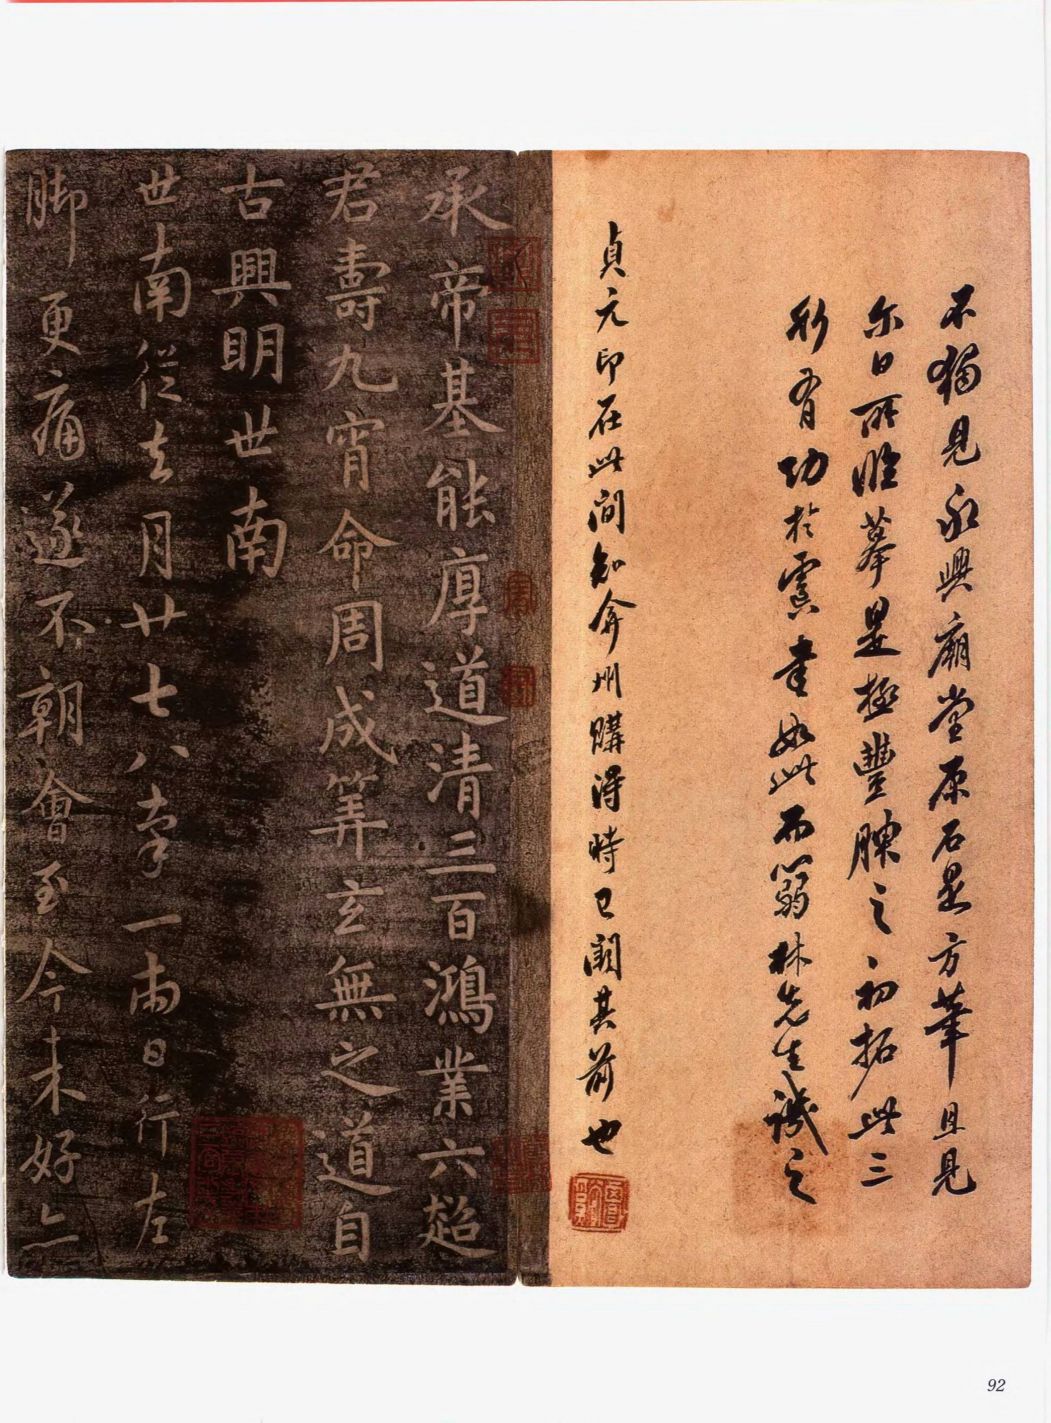 不獨見永興廟堂原石是方筆且見
尔日所臨摹是極豐腴之初拓此三
形有功於虞書如此而翁林先生識之
貞元印在此間知弇州購得時已闕其前也
承帝基能厚道清三百鴻業六超
君壽九宵命周成筭玄無之道自
古興明世南
世南從去月廿七八率一兩日行左
脚更痛遂不朝會至今未好亦
92